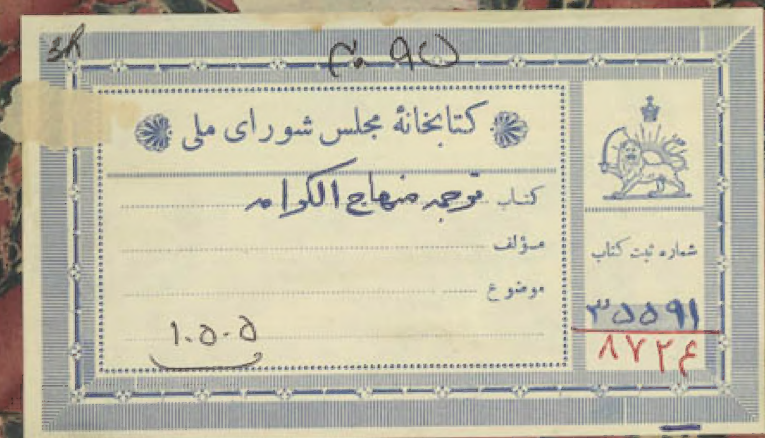 ۴۰۹۵
کتابخانهٔ مجلس شورای ملی
کتاب ترجمه منهاج الکرامه
مؤلف
موضوع
۱۰۵۰۵
شماره ثبت کتاب
۳۵۵۹۱
۸۷۲۴